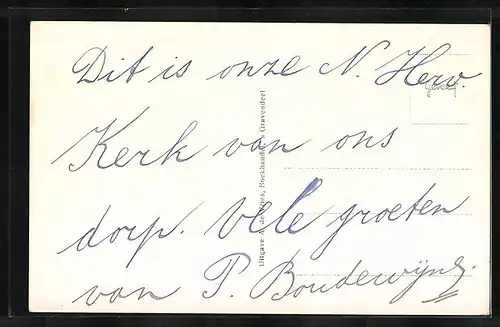 Dit is onze N. Herv.
Kerk van ons
dorp. Vele groeten
van P. Boudewijns.
Uitgave A. de Vries, Boekhandel, 's Gravendeel